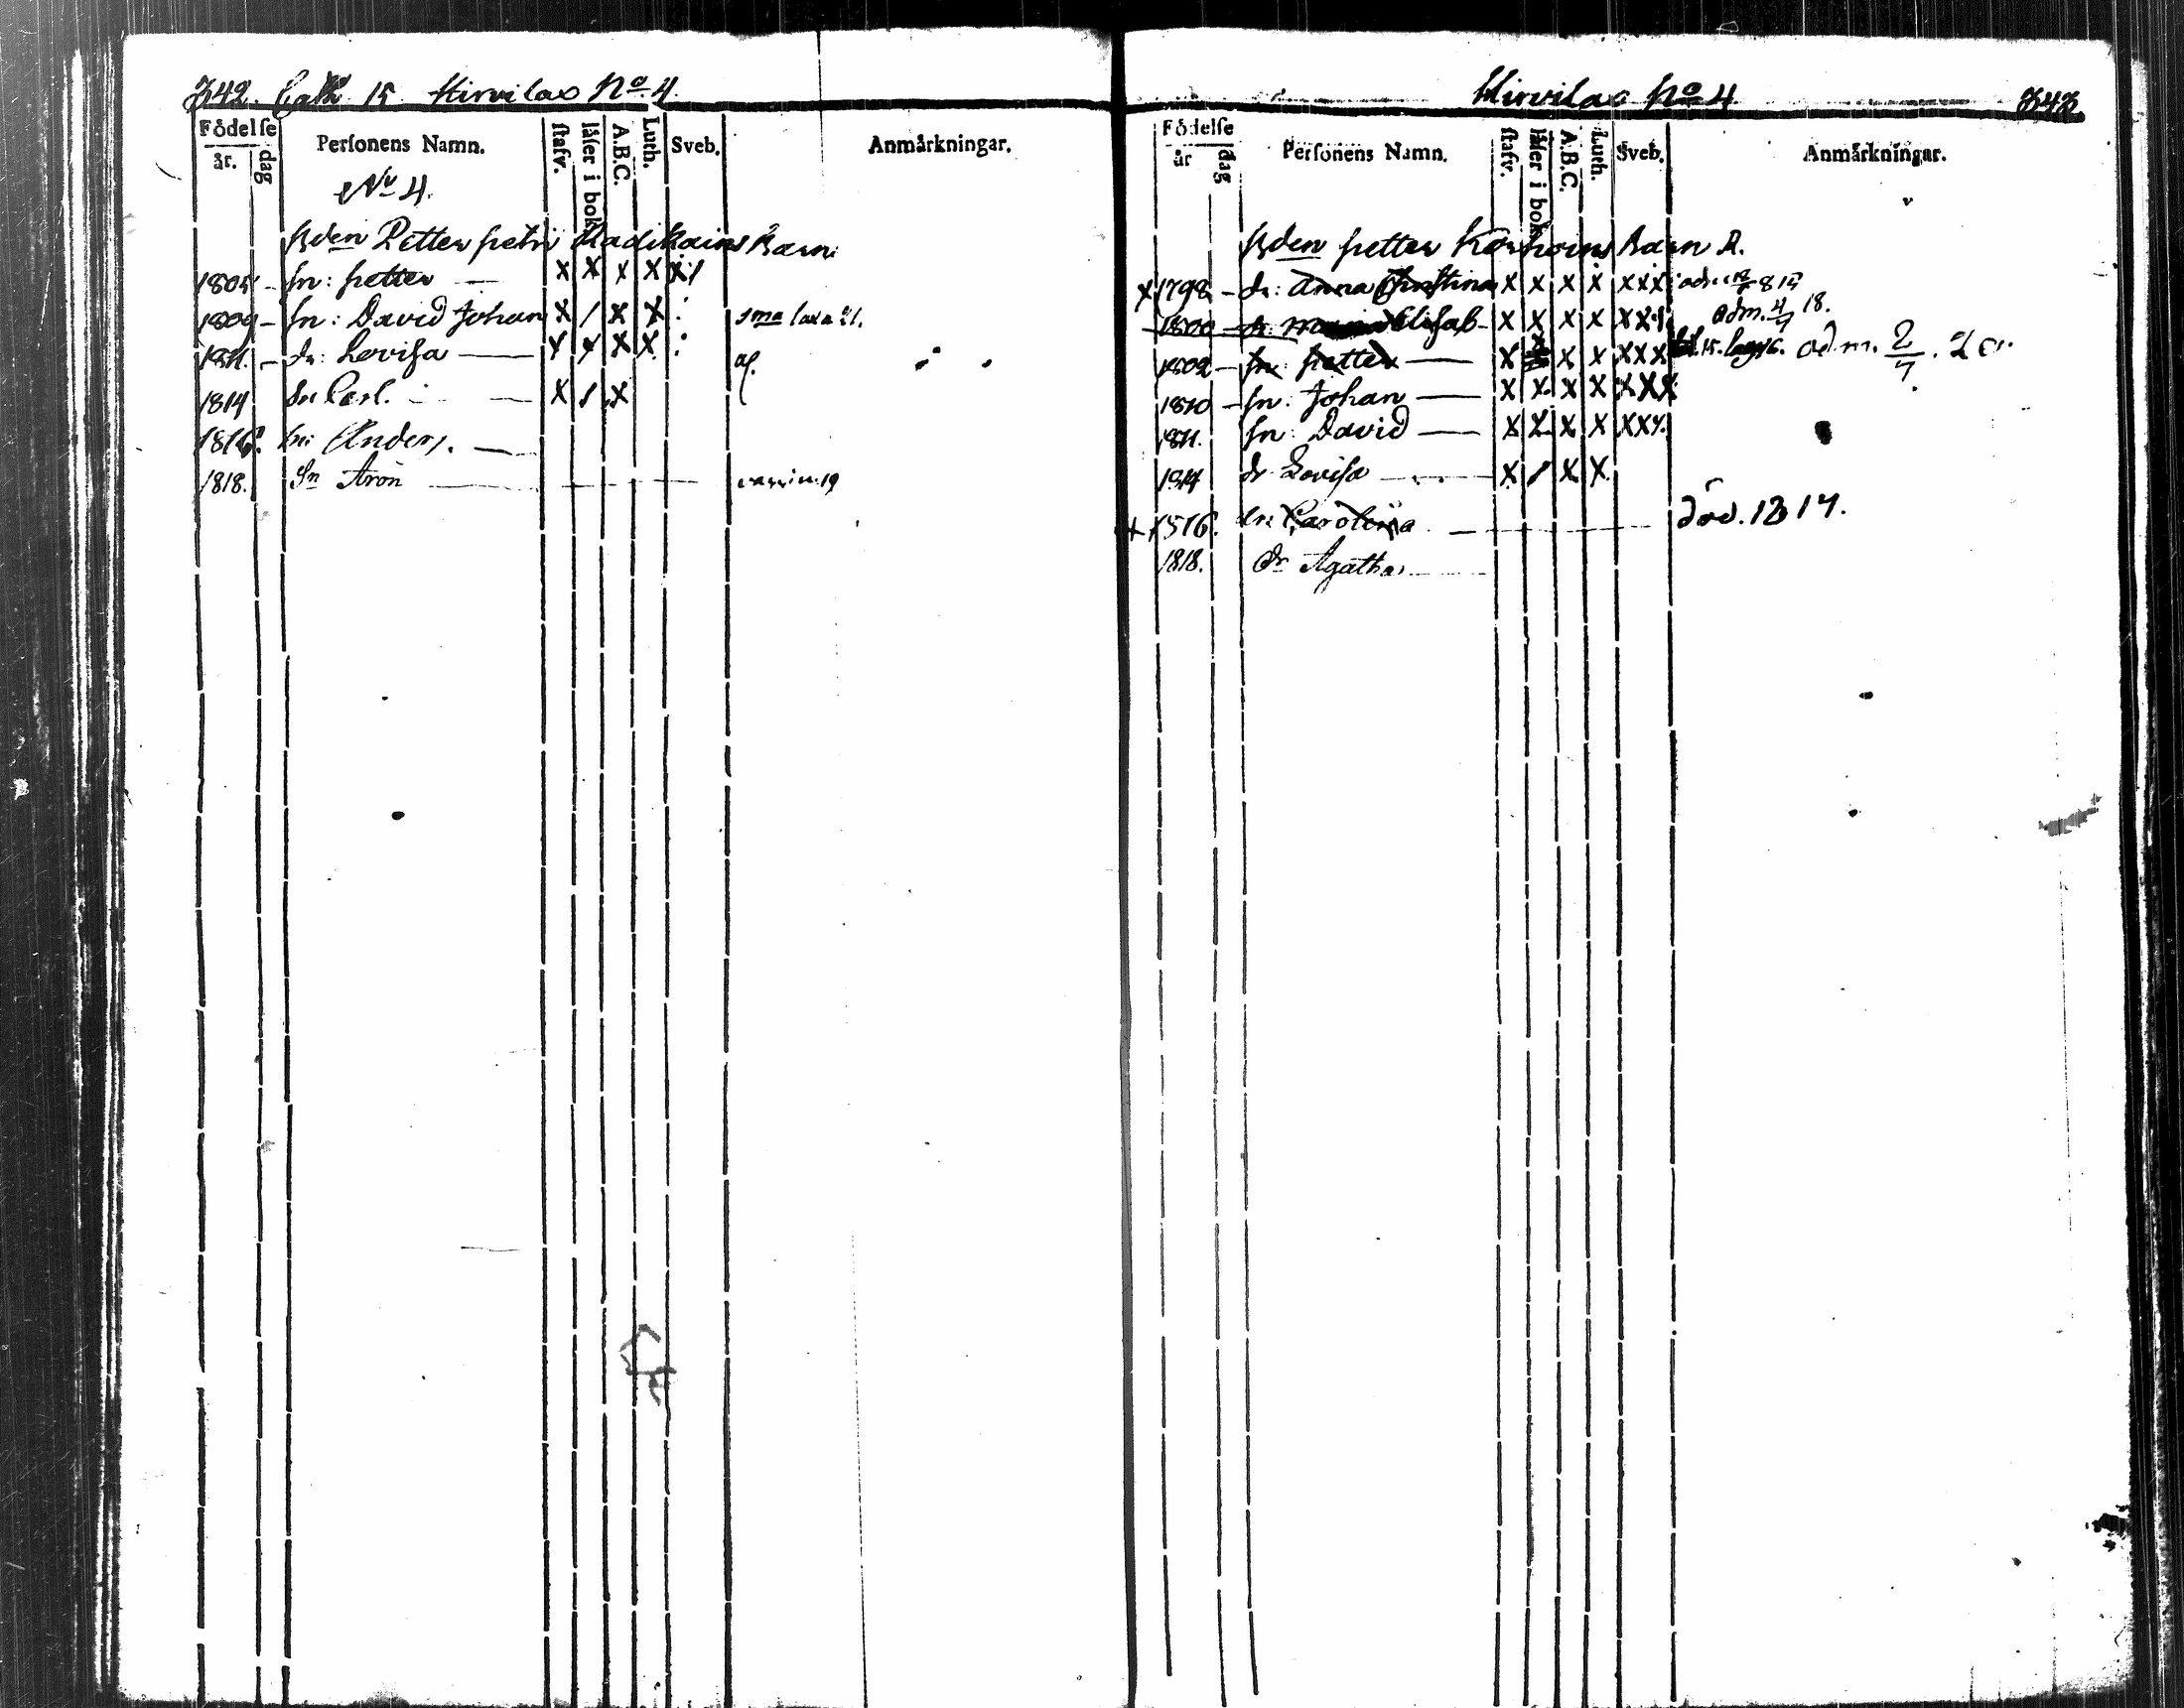 342. Cath 15 Hirvilax No 4.
Födelse
år. dag
Personens Namn.
stafv.
läser i bok
A.B.C.
Luth.
Sveb.
Anmärkningar.
No 4.
Bden Petter petri Barn
1805 – sn: petter — X X X X X/
1809 – sn: David Johan X / X X :
1811. – dr: Lovisa — X X X X :
1814 sn Carl. — X / X
1816. sn: Anders. —
1818. Sn Aron —
Hirvilax No 4 343
Födelse
år dag
Personens Namn.
stafv.
läser i bok
A.B.C.
Luth.
Sveb.
Anmärkningar.
Bden petter Korhoins Barn A.
X 1798 – dr: Anna Christina X X X X XXX
1800 – dr: Elisab – X X X X XX adm. 4/7 18.
1802 – sn: petter — X X X XXX adm. 2/7. 20.
1810 – sn: Johan — X X X X XXX
1811. sn: David — X X X X XXX
1814 dr Lovisa — X / X X
X 1816. dr: Carolina — död. 1817.
1818. dr Agatha —